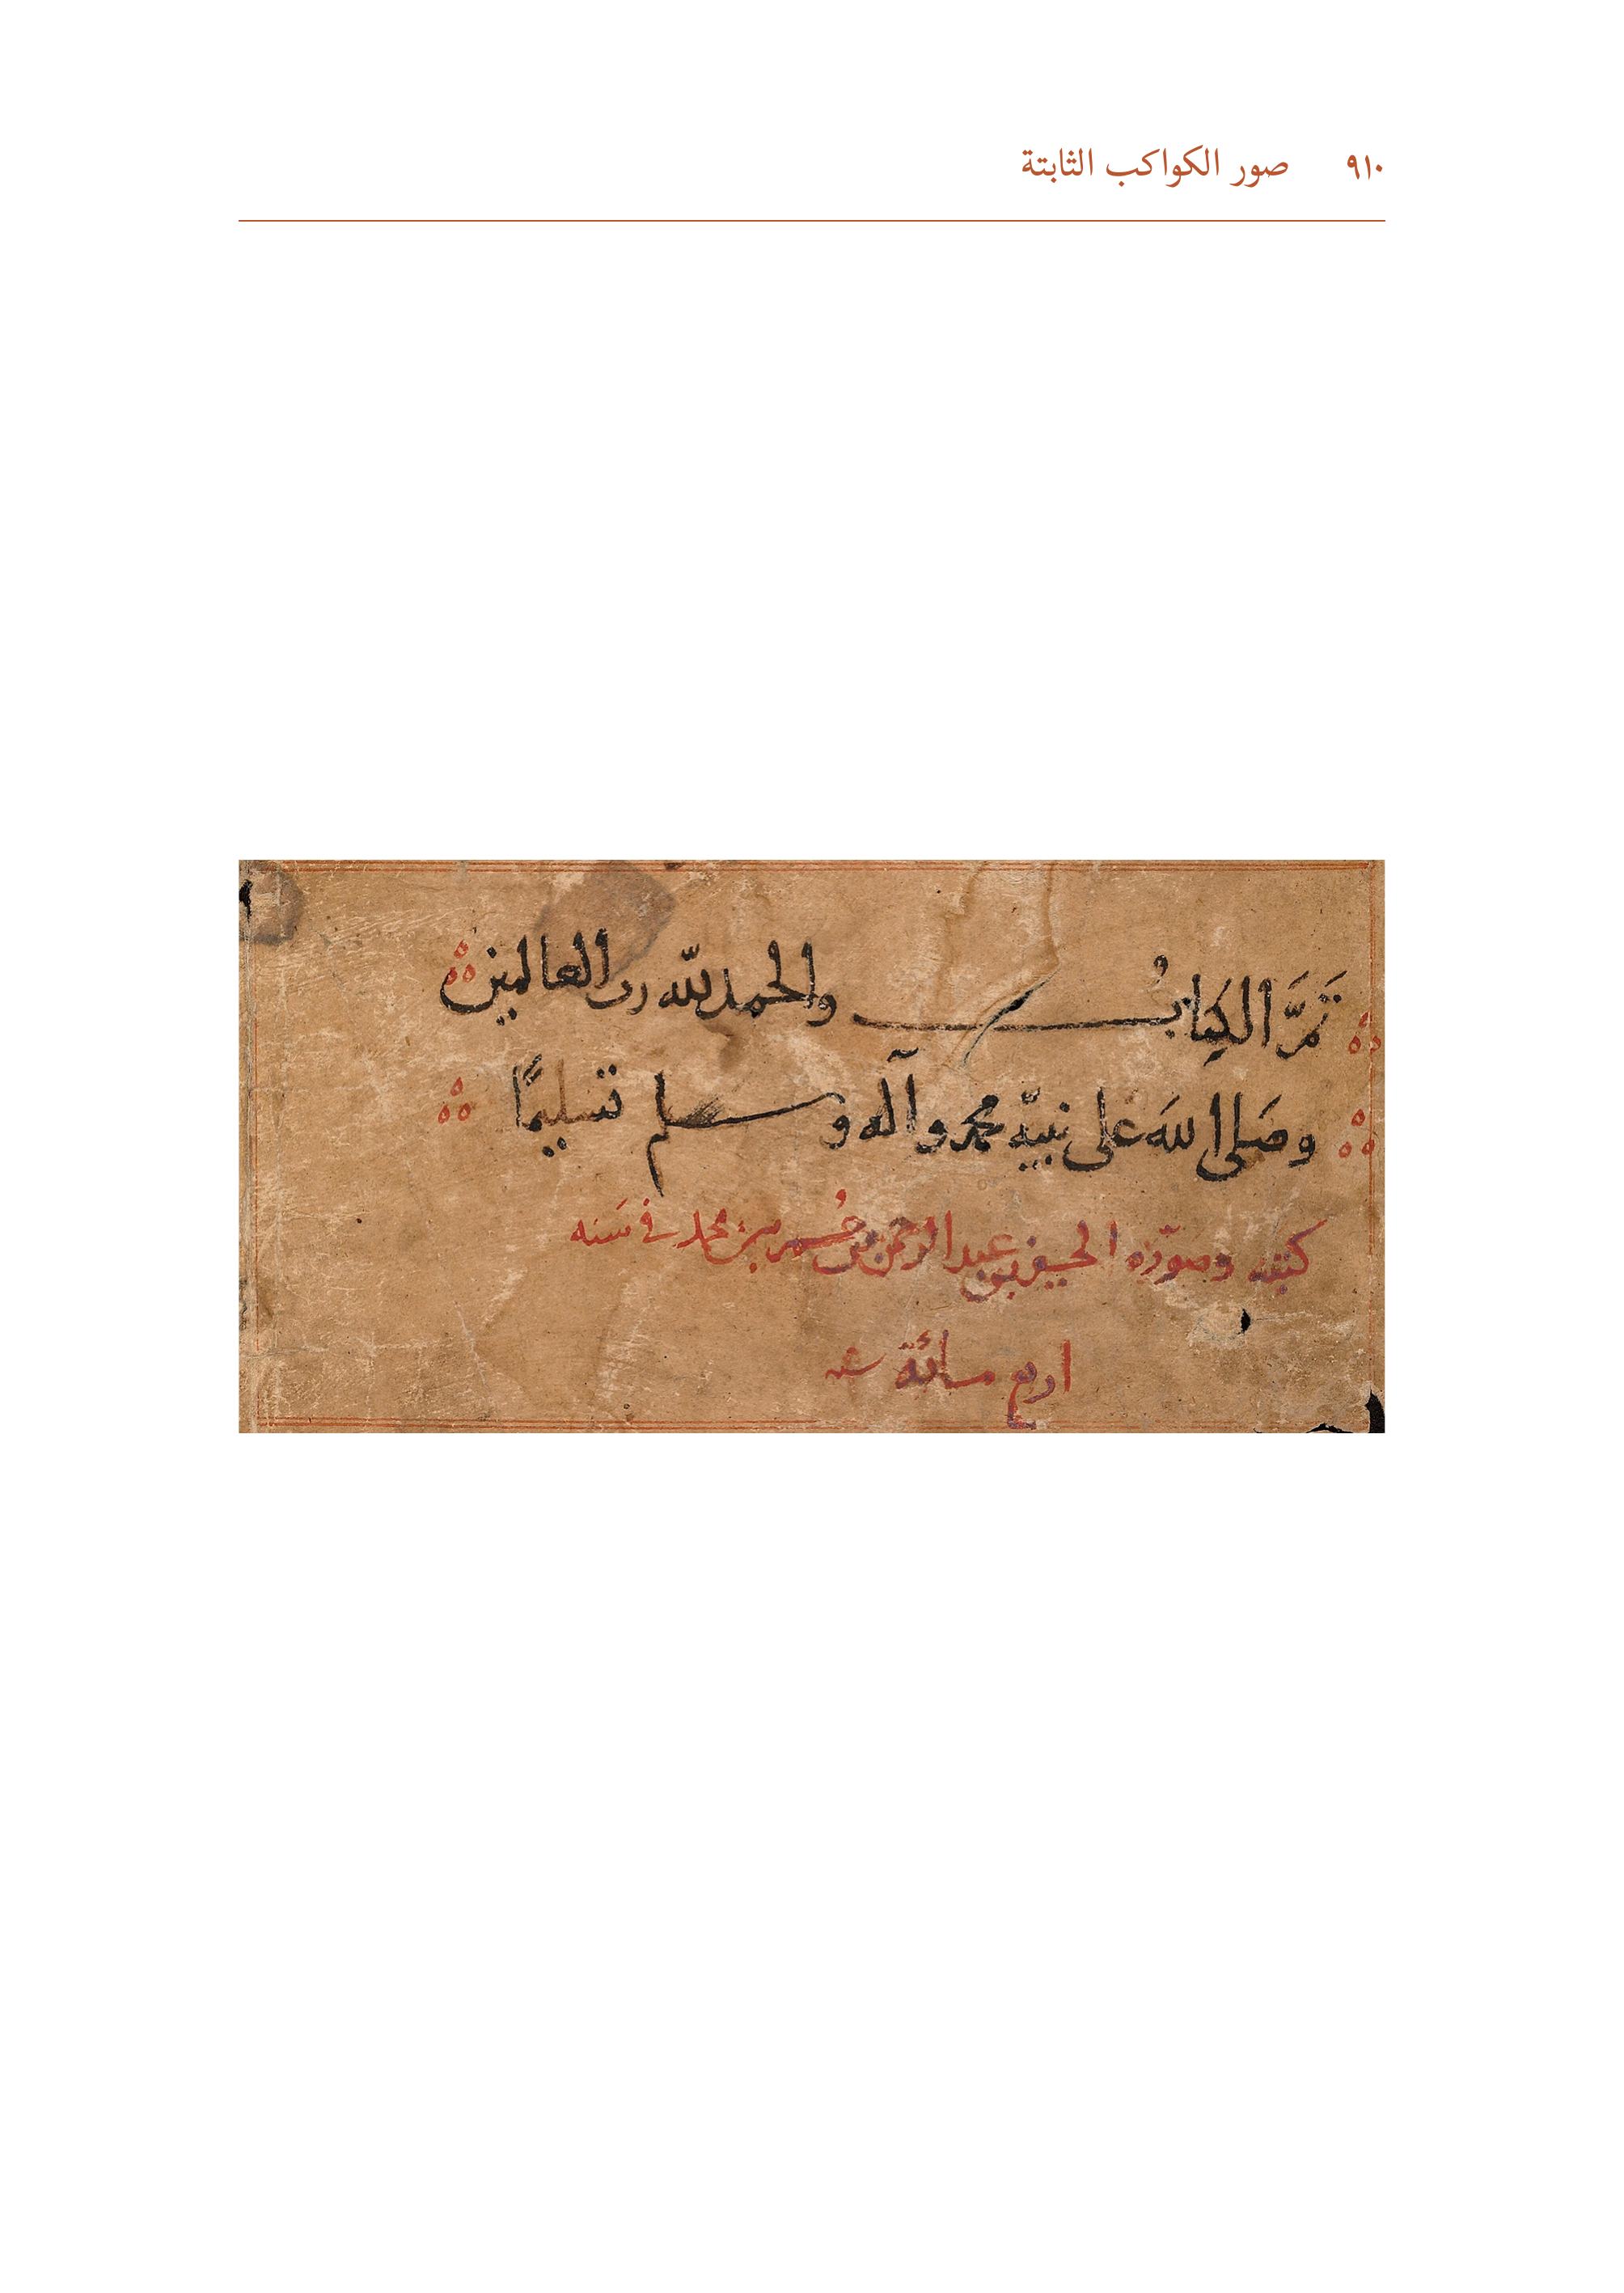 ٩١٠ صور الكواكب الثابتة
تَمَّ الكِتابُ والحمد لله رب العالمين
وصَلى اللهَ على نبيّه محمد وآله وسلم تسليمًا
كتبه وصوّره الحسين بن عبد الرحمن بن عُمر بن محمد في سَنه
اربع مائة